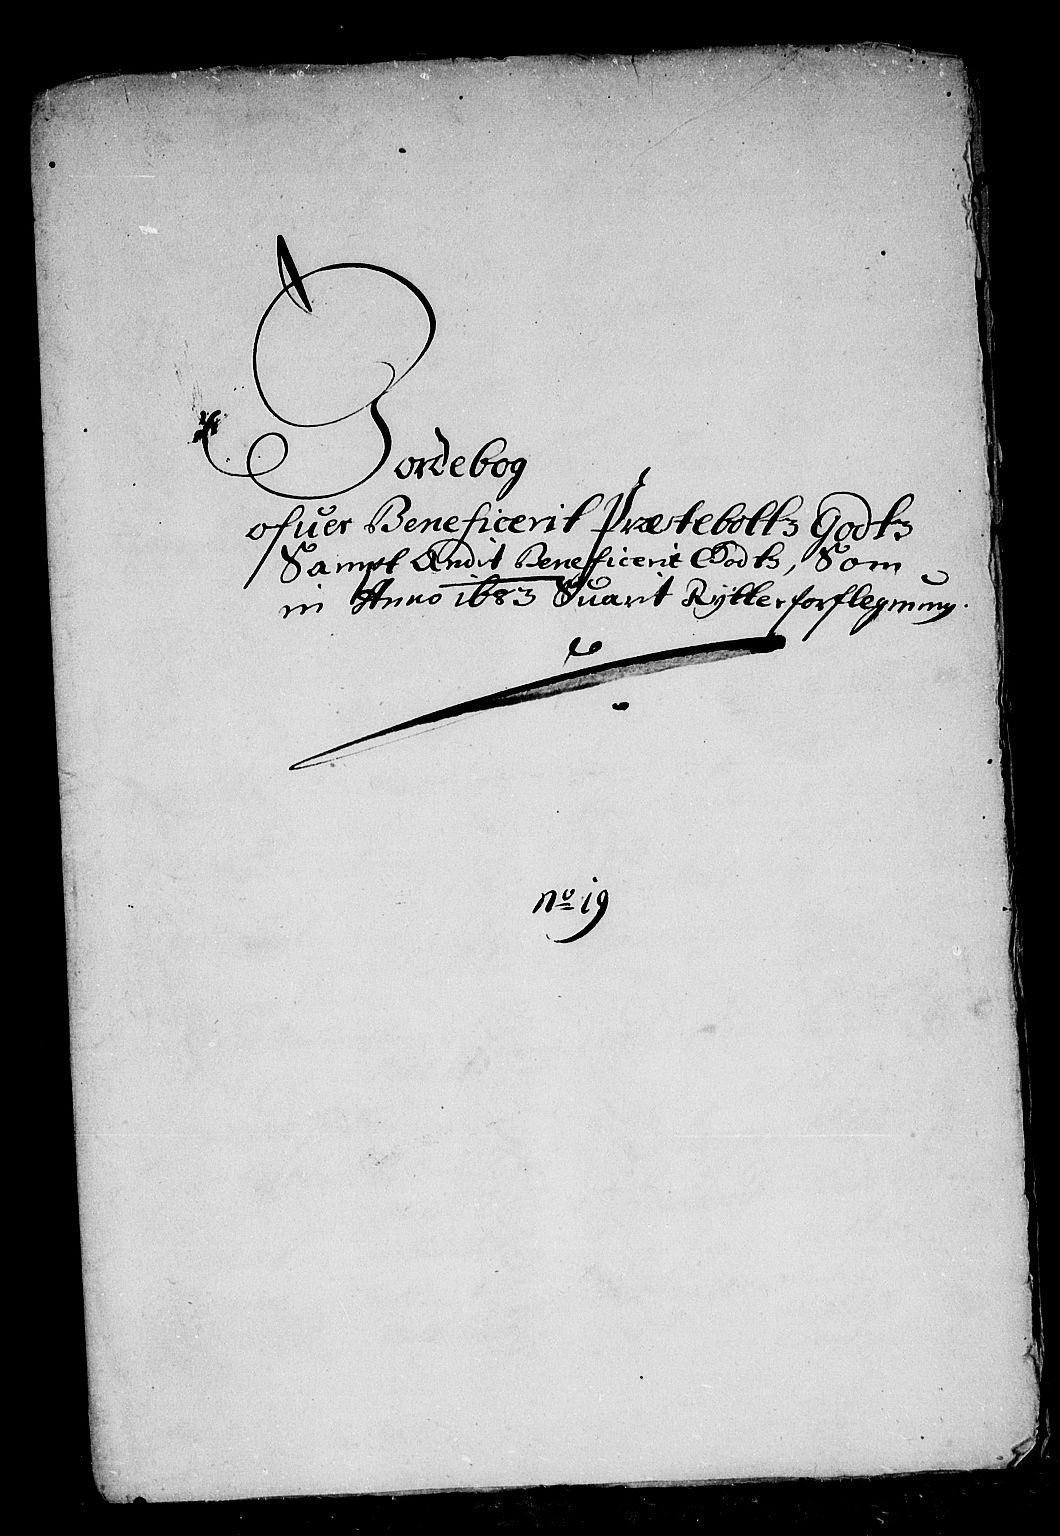 Jordebog
ofuer Beneficerit Præstebolts Godtz
Sampt Andit Beneficerit Godtz, Som
in Anno 1683 Suarit Rytterforflegning.
no 19